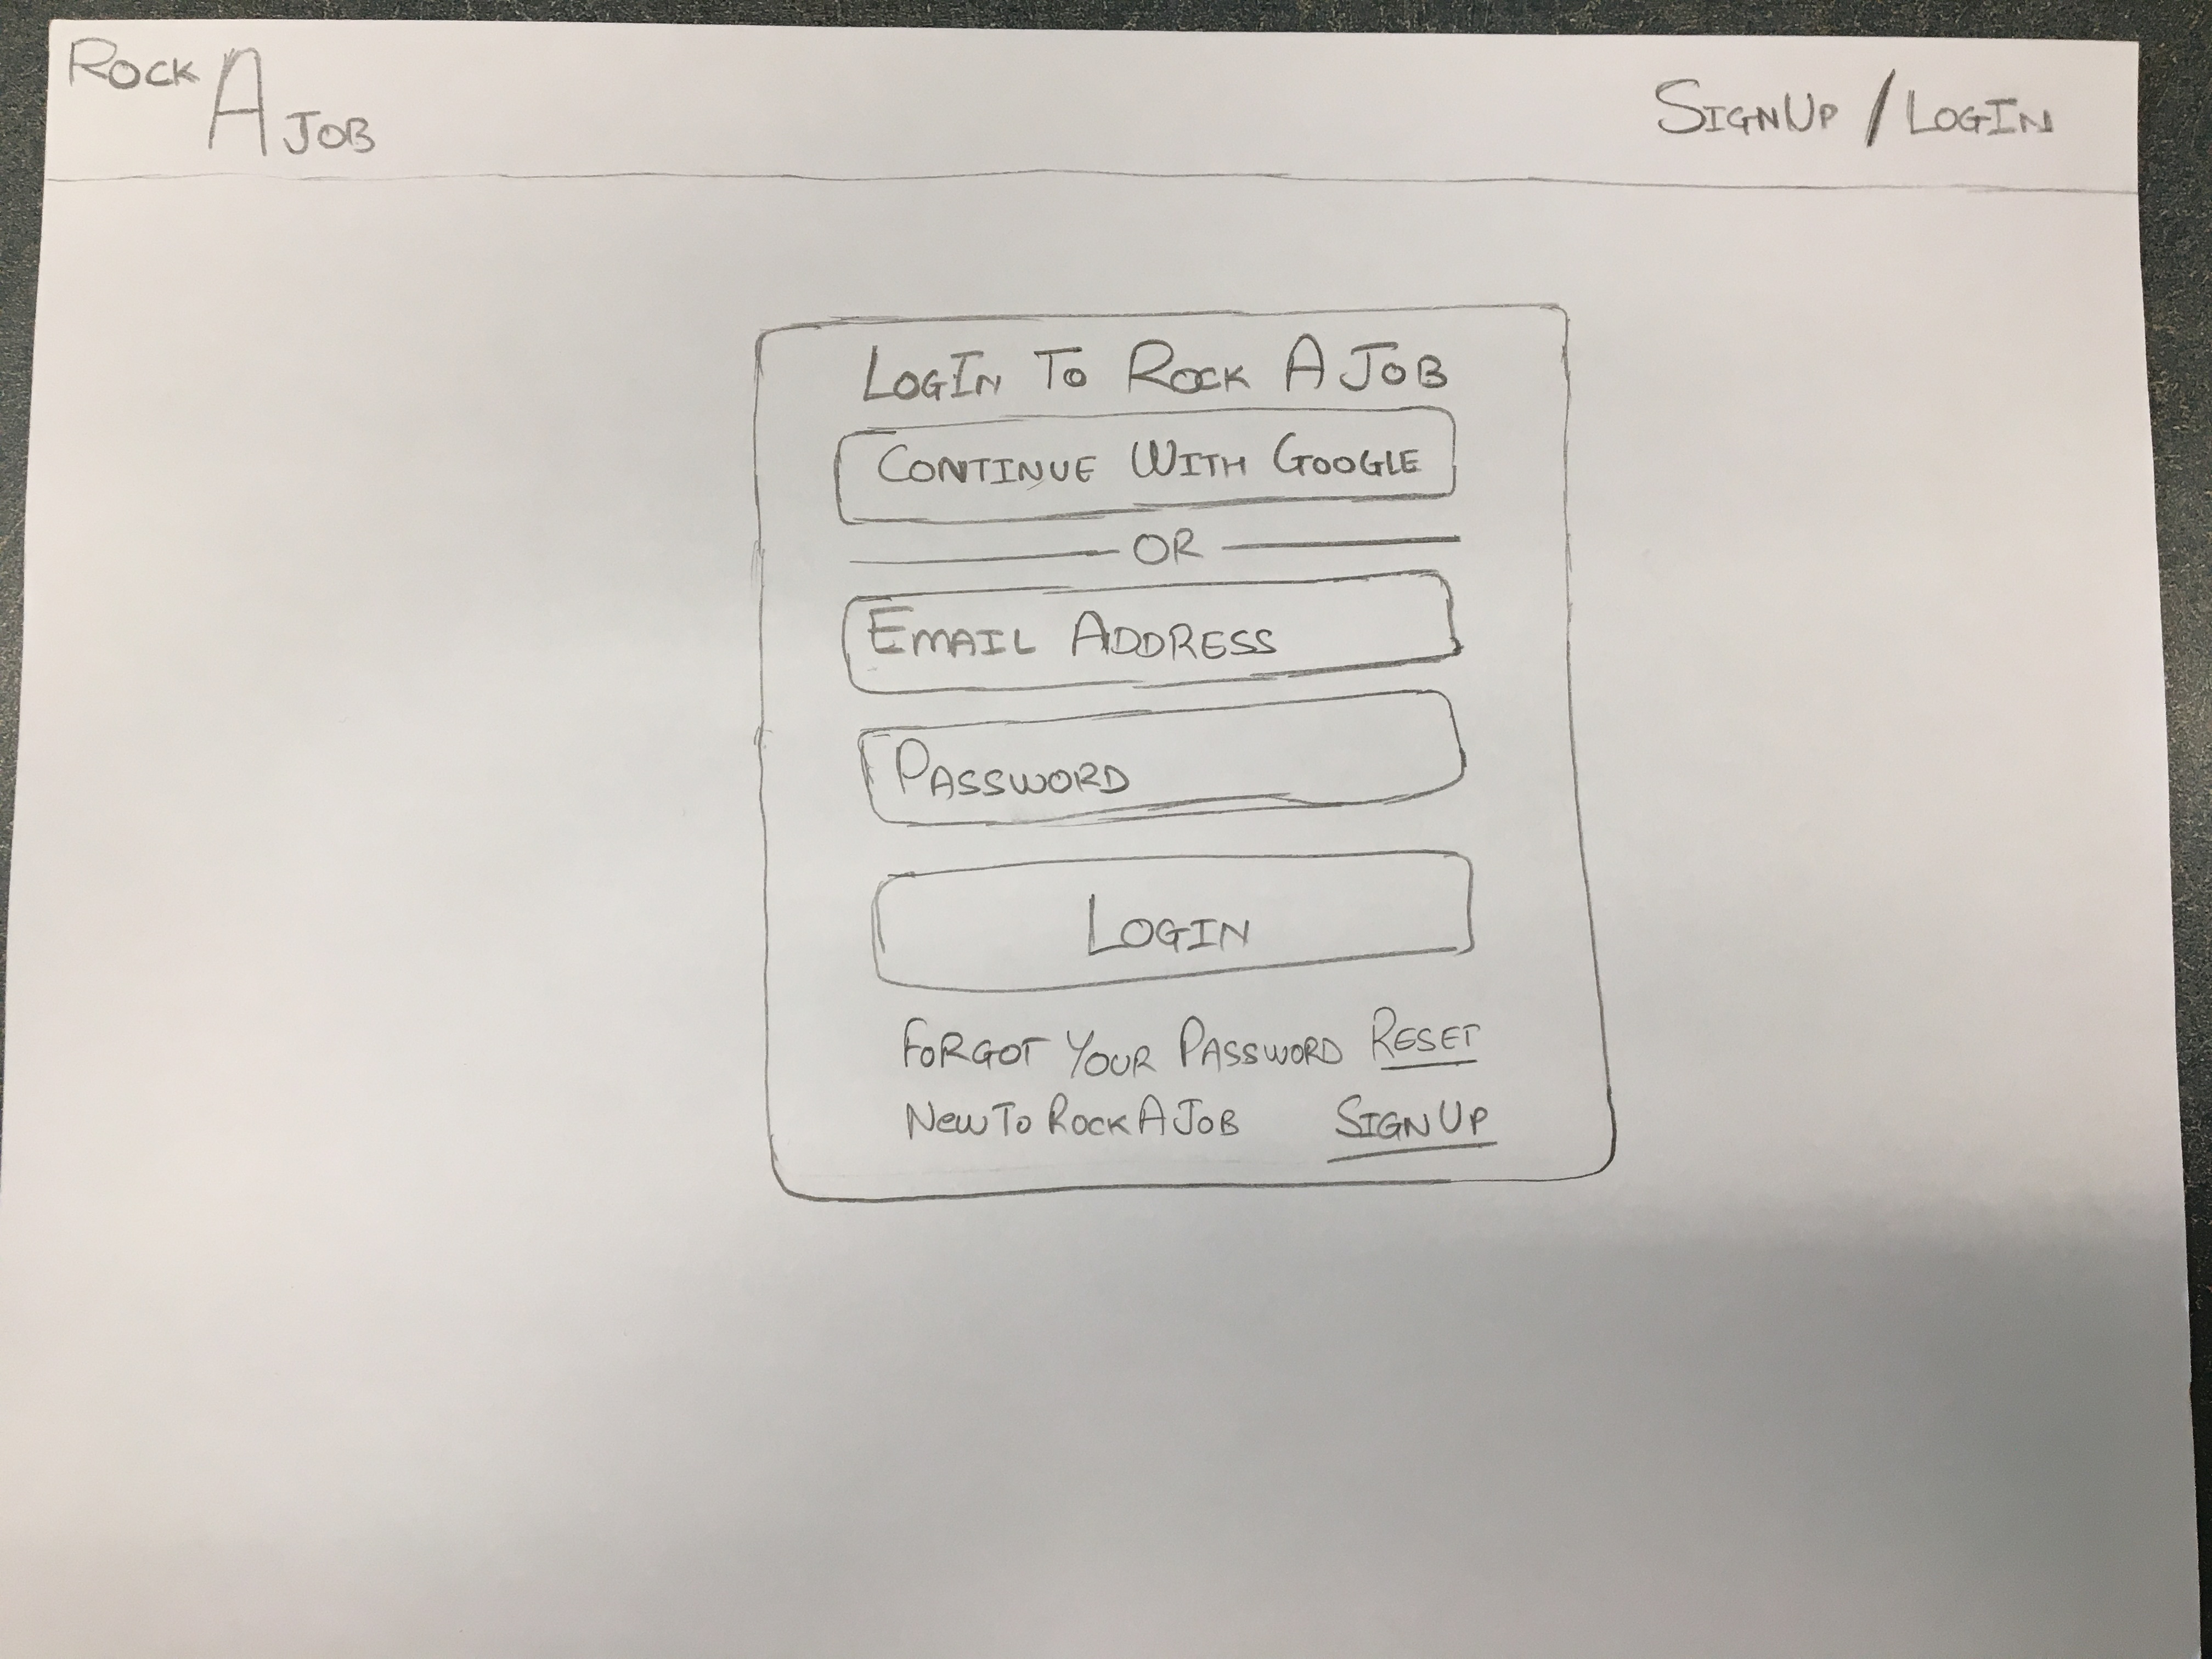 ROCK
A
JOB
SIGNUP / LOGIN
LOGIN TO ROCK A JOB
CONTINUE WITH GOOGLE
OR
EMAIL ADDRESS
PASSWORD
LOGIN
FORGOT YOUR PASSWORD RESET
NEW TO ROCK A JOB SIGN UP